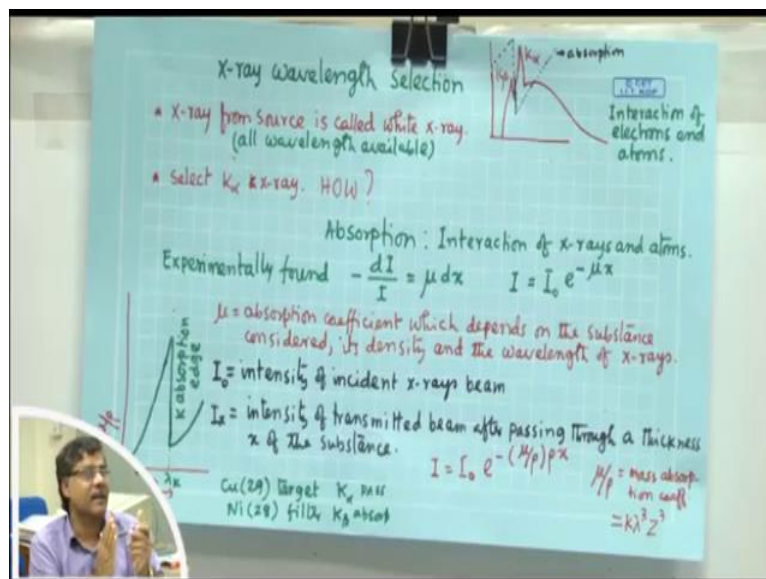 X-ray wavelength Selection
Kβ
Kα
absorption
Interaction of
electrons and
atoms.
* X-ray from source is called white x-ray.
(all wavelength available)
* Select Kα x-ray. HOW?
Absorption : Interaction of x-rays and atoms.
Experimentally found - dI/I = μdx I = I₀ e^-μx
μ = absorption coefficient which depends on the substance
considered, its density and the wavelength of x-rays.
I₀ = intensity of incident x-rays beam
Iₓ = intensity of transmitted beam after passing through a thickness
x of the substance.
I = I₀ e^-(μ/ρ)ρx
μ/ρ = mass absorp-
tion coeff
= Kλ³Z³
μ/ρ
K absorption
edge
λK
Cu(29) Target Kα pass
Ni(28) filter Kβ absorp